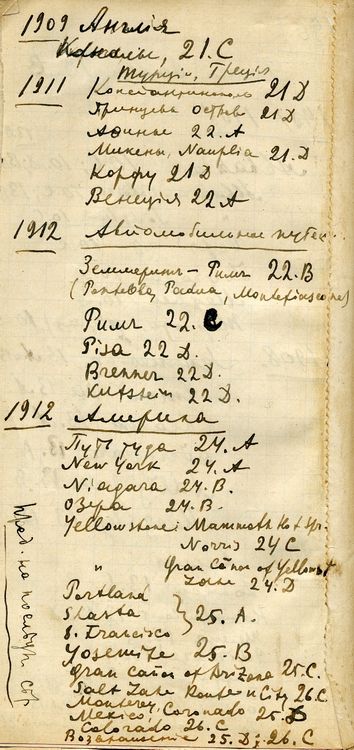 1909 Англія
Каналы, 21.C
Турція, Греція
1911 Константинополь 21 D
Принцевы остров 21 D
Афины 22.A
Микены, Nauplia 21.D
Корфу 21 D
Венеція 22 A
1912 Автомобильное путеш.
Земмерингъ - Римъ 22.B
(Pontebba, Padua, Montefiascone)
Римъ 22.C
Pisa 22 D.
Brenner 22 D.
Kufstein 22 D.
1912 Америка
Путь туда 24.A
New York 24.A
Niagara 24.B.
Озера 24.B.
Yellowstone: Mammoth Hot Spr.
Norris 24 C
" Gran Cañon of Yellowst
Lake 24.D
Portland
Shasta } 25.A.
S. Francisco
Yosemite 25.B
Gran Cañon of Arizona 25.C.
Salt Lake Route и City 26.C
Monterey, Coronado 25.D
Mexico,
Colorado 26.C
Возвращение 25.D; 26.C